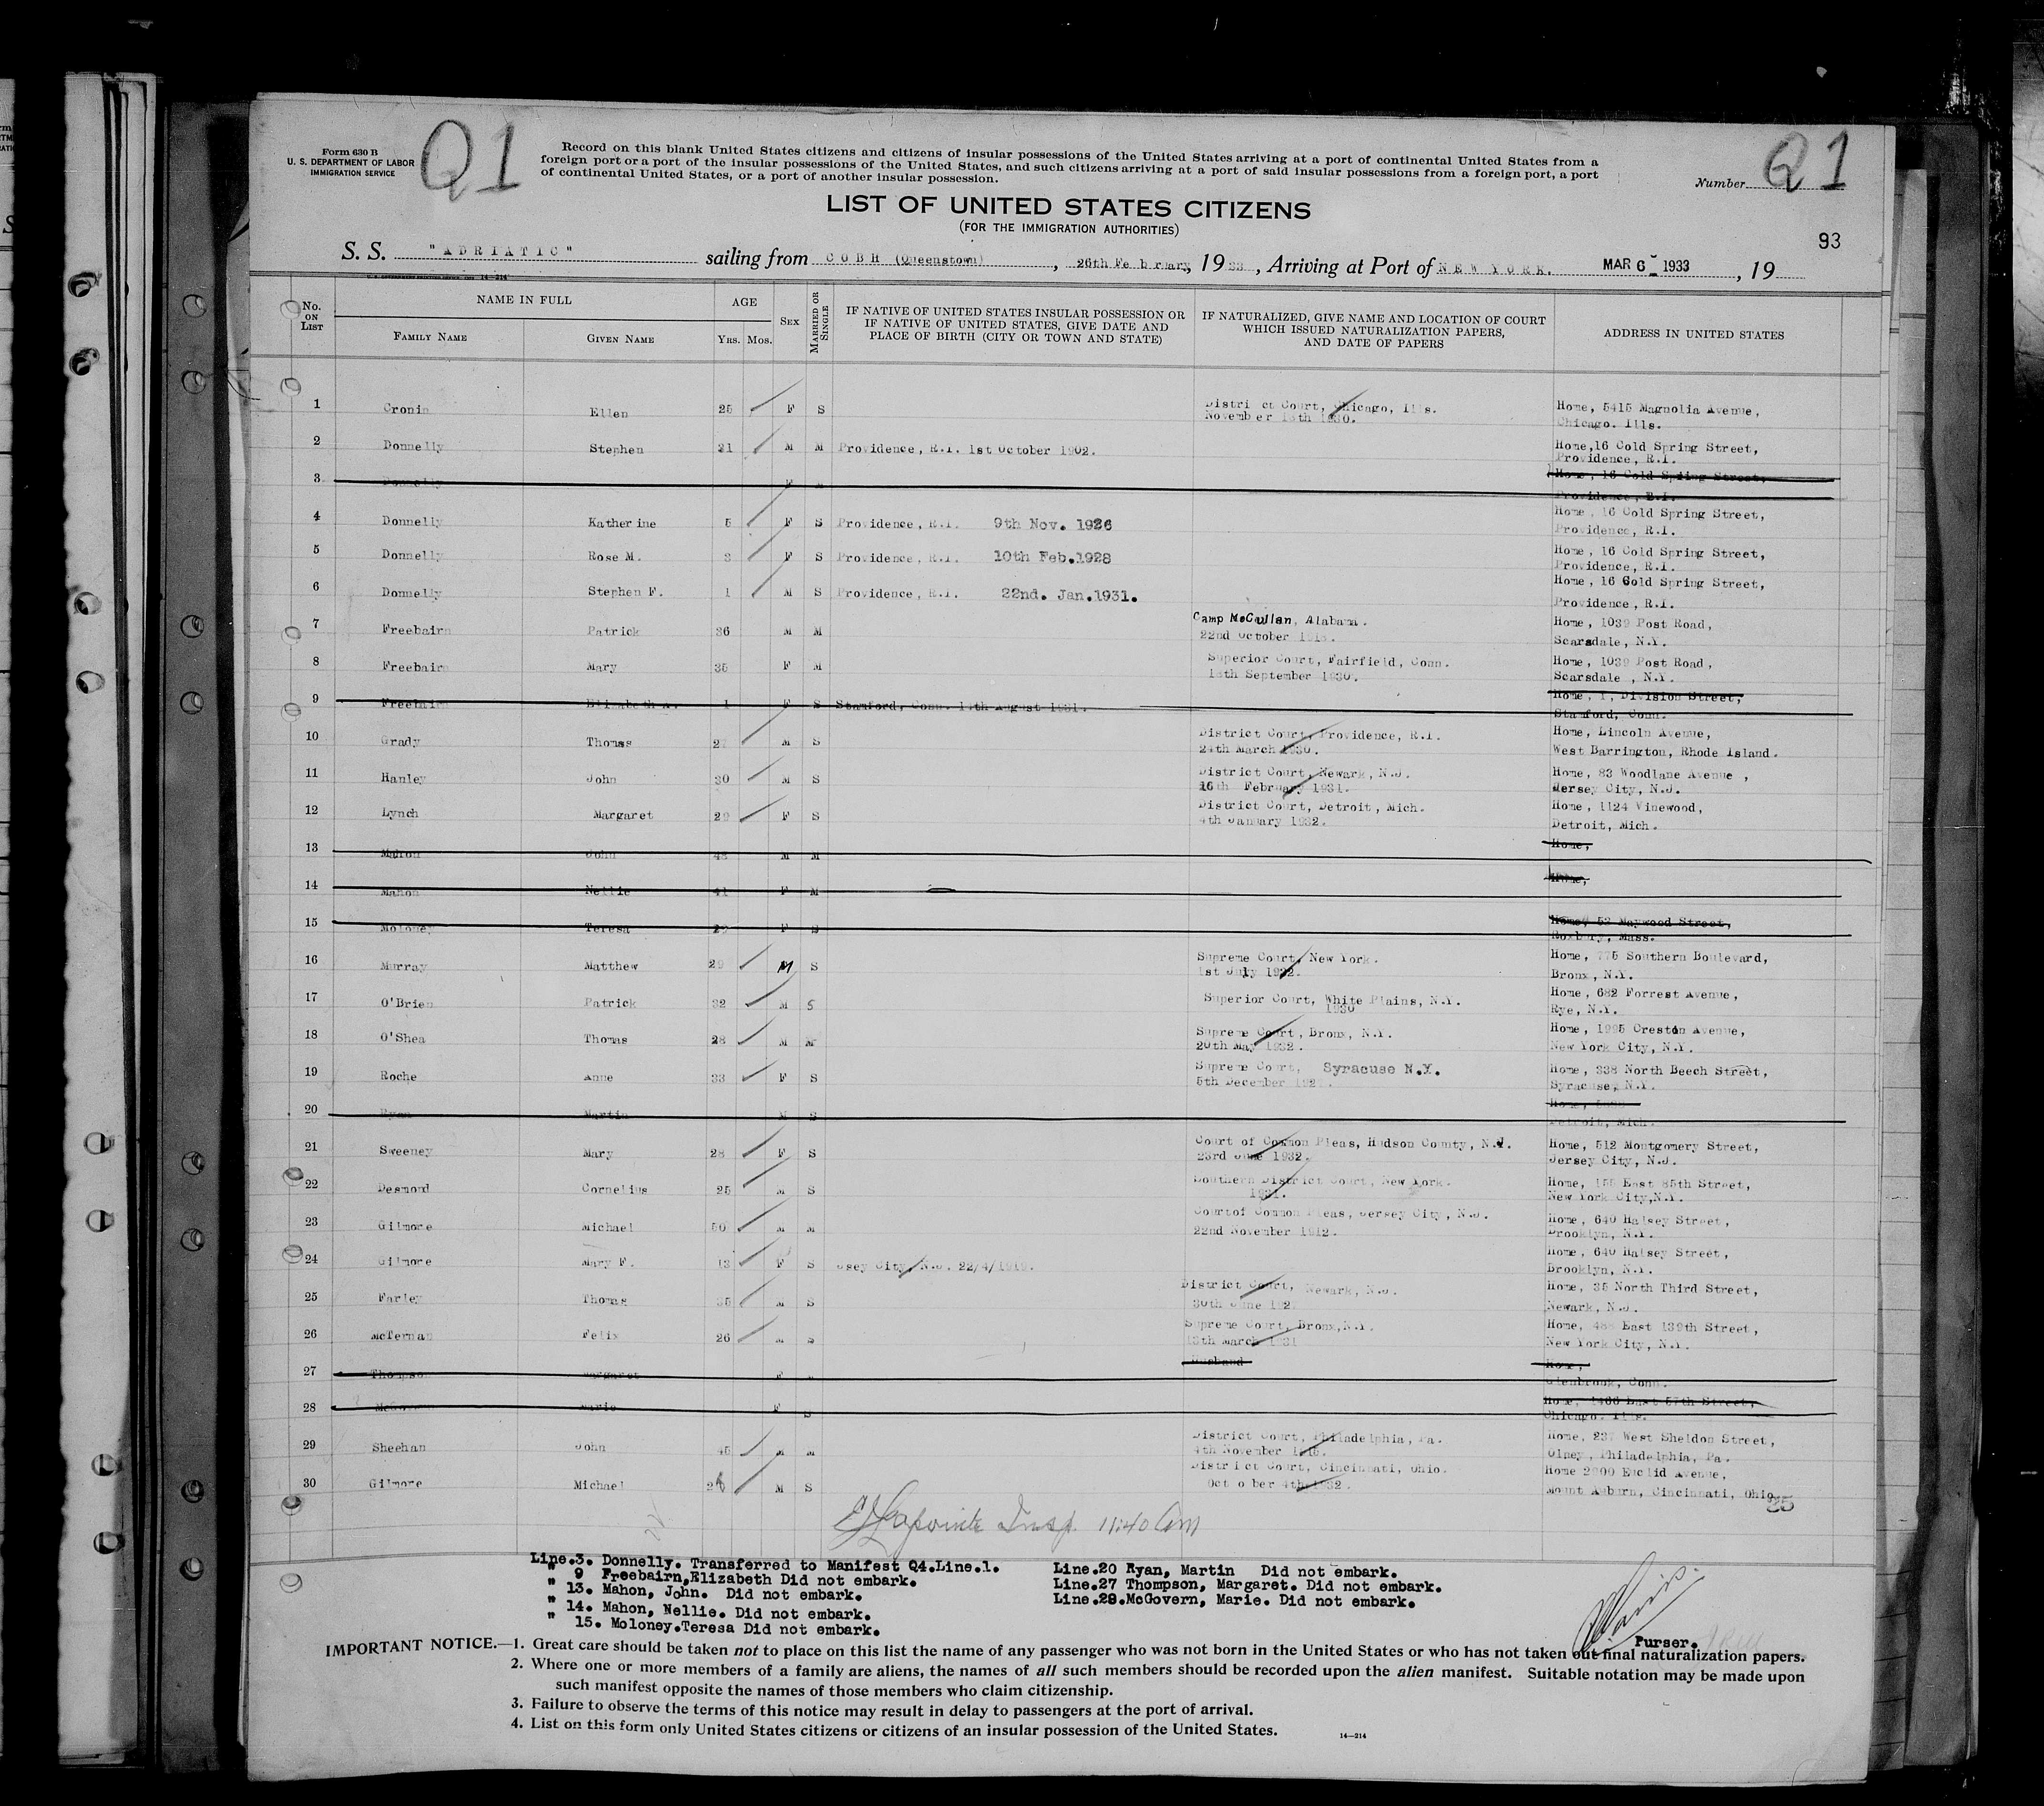 Form 630 B
U. S. DEPARTMENT OF LABOR
IMMIGRATION SERVICE
Q1
Record on this blank United States citizens and citizens of insular possessions of the United States arriving at a port of continental United States from a
foreign port or a port of the insular possessions of the United States, and such citizens arriving at a port of said insular possessions from a foreign port, a port
of continental United States, or a port of another insular possession.
Number Q1
LIST OF UNITED STATES CITIZENS
(FOR THE IMMIGRATION AUTHORITIES)
93
S. S. "ADRIATIC" sailing from COBH (Queenstown), 26th February, 1933, Arriving at Port of NEW YORK. MAR 6 - 1933, 19
14-214
No. ON LIST NAME IN FULL FAMILY NAME GIVEN NAME AGE YRS. MOS. SEX MARRIED OR SINGLE IF NATIVE OF UNITED STATES INSULAR POSSESSION OR IF NATIVE OF UNITED STATES, GIVE DATE AND PLACE OF BIRTH (CITY OR TOWN AND STATE) IF NATURALIZED, GIVE NAME AND LOCATION OF COURT WHICH ISSUED NATURALIZATION PAPERS, AND DATE OF PAPERS ADDRESS IN UNITED STATES
1 Cronin Ellen 25 F S District Court, Chicago, Ills. Home, 5415 Magnolia Avenue,
November 1930. Chicago. Ills.
2 Donnelly Stephen 31 M M Providence, R.I. 1st October 1902. Home, 16 Cold Spring Street,
Providence, R.I.
3 Donnelly F Home, 16 Cold Spring Street,
Providence, R.I.
4 Donnelly Katherine 5 F S Providence, R.I. 9th Nov. 1926 Home, 16 Cold Spring Street,
Providence, R.I.
5 Donnelly Rose M. 3 F S Providence, R.I. 10th Feb.1928 Home, 16 Cold Spring Street,
Providence, R.I.
6 Donnelly Stephen F. 1 M S Providence, R.I. 22nd. Jan.1931. Home, 16 Cold Spring Street,
Providence, R.I.
7 Freebairn Patrick 36 M M Camp McCullan, Alabama. Home, 1039 Post Road,
22nd October Scarsdale, N.Y.
8 Freebairn Mary 35 F M Superior Court, Fairfield, Conn. Home, 1039 Post Road,
September 1930. Scarsdale, N.Y.
9 Freebairn Elizabeth A. 1 F S Stamford, Conn. August 1931. Home, 1, Division Street,
Stamford, Conn.
10 Grady Thomas M S District Court, Providence, R.I. Home, Lincoln Avenue,
24th March 1930. West Barrington, Rhode Island.
11 Hanley John 30 M S District Court, Newark, N.J. Home, 83 Woodlane Avenue,
16th February 1931. Jersey City, N.J.
12 Lynch Margaret 29 F S District Court, Detroit, Mich. Home, 1124 Vinewood,
4th January 1932. Detroit, Mich.
13 Mahon John M M Home,
14 Mahon Nellie 41 F M Home,
15 Moloney Teresa F S Home, 53 Maywood Street,
Roxbury, Mass.
16 Murray Matthew 29 M S Supreme Court, New York. Home, 775 Southern Boulevard,
1st July 1932. Bronx, N.Y.
17 O'Brien Patrick 32 M S Superior Court, White Plains, N.Y. Home, 682 Forrest Avenue,
1930 Rye, N.Y.
18 O'Shea Thomas 28 M M Supreme Court, Bronx, N.Y. Home, 1995 Creston Avenue,
20th May 1932. New York City, N.Y.
19 Roche Anne 33 F S Supreme Court, Syracuse N.Y. Home, 338 North Beech Street,
5th December Syracuse, N.Y.
20 Ryan Martin M S Home,
Detroit, Mich.
21 Sweeney Mary 28 F S Court of Common Pleas, Hudson County, N.J. Home, 512 Montgomery Street,
23rd June 1932. Jersey City, N.J.
22 Desmond Cornelius 25 M S Southern District Court, New York. Home, 155 East 85th Street,
1931. New York City, N.Y.
23 Gilmore Michael 50 M M Court of Common Pleas, Jersey City, N.J. Home, 640 Halsey Street,
22nd November 1912. Brooklyn, N.Y.
24 Gilmore Mary F. 13 F S Jsey City, N.J. 22/4/1919. Home, 640 Halsey Street,
Brooklyn, N.Y.
25 Farley Thomas 35 M S District Court, Newark, N.J. Home, 35 North Third Street,
30th June Newark, N.J.
26 McTernan Felix 26 M S Supreme Court, Bronx, N.Y. Home, East 139th Street,
March 1931 New York City, N.Y.
27 Thompson Margaret F Husband Home,
Glenbrook, Conn.
28 McGovern Marie F S Home, 1466 East 57th Street,
Chicago. Ills.
29 Sheehan John 45 M M District Court, Philadelphia, Pa. Home, 237 West Sheldon Street,
4th November Olney, Philadelphia, Pa.
30 Gilmore Michael 26 M S District Court, Cincinnati, Ohio. Home 2900 Euclid Avenue,
October 4th 1932. Mount Auburn, Cincinnati, Ohio
25
Lapointe Insp. 11:40 Am
Line.3. Donnelly. Transferred to Manifest Q4.Line.1.
" 9 Freebairn,Elizabeth Did not embark.
" 13. Mahon, John. Did not embark.
" 14. Mahon, Nellie. Did not embark.
" 15. Moloney.Teresa Did not embark.
Line.20 Ryan, Martin Did not embark.
Line.27 Thompson, Margaret. Did not embark.
Line.28.McGovern, Marie. Did not embark.
Purser.
IMPORTANT NOTICE.—1. Great care should be taken not to place on this list the name of any passenger who was not born in the United States or who has not taken out final naturalization papers.
2. Where one or more members of a family are aliens, the names of all such members should be recorded upon the alien manifest. Suitable notation may be made upon
such manifest opposite the names of those members who claim citizenship.
3. Failure to observe the terms of this notice may result in delay to passengers at the port of arrival.
4. List on this form only United States citizens or citizens of an insular possession of the United States.
14—214